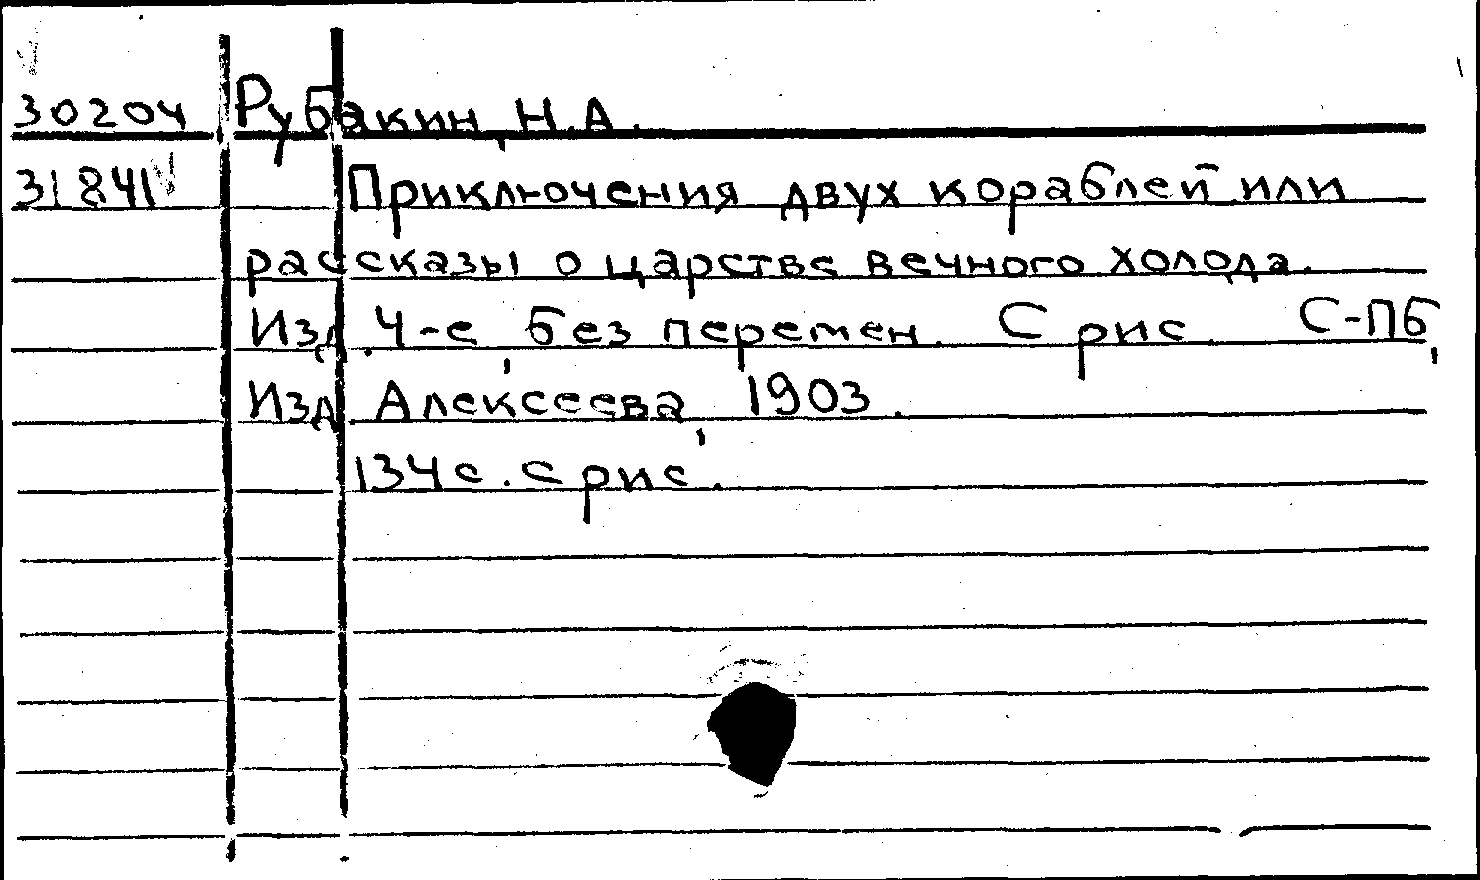 30204 Рубакин, Н.А.
31841 Приключения двух кораблей или
рассказы о царстве вечного холода.
Изд. 4-е, без перемен. С рис. С-Пб,
Изд. Алексеева, 1903.
134 с. с рис.